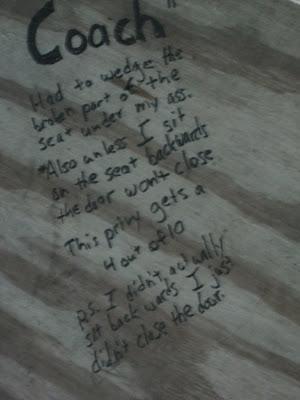 Coach"
Had to wedge the
broken part of the
seat under my ass.
*Also unless I sit
on the seat backwards
the door won't close
This privy gets a
4 out of 10
P.S. I didn't actually
sit backwards I just
didn't close the door.